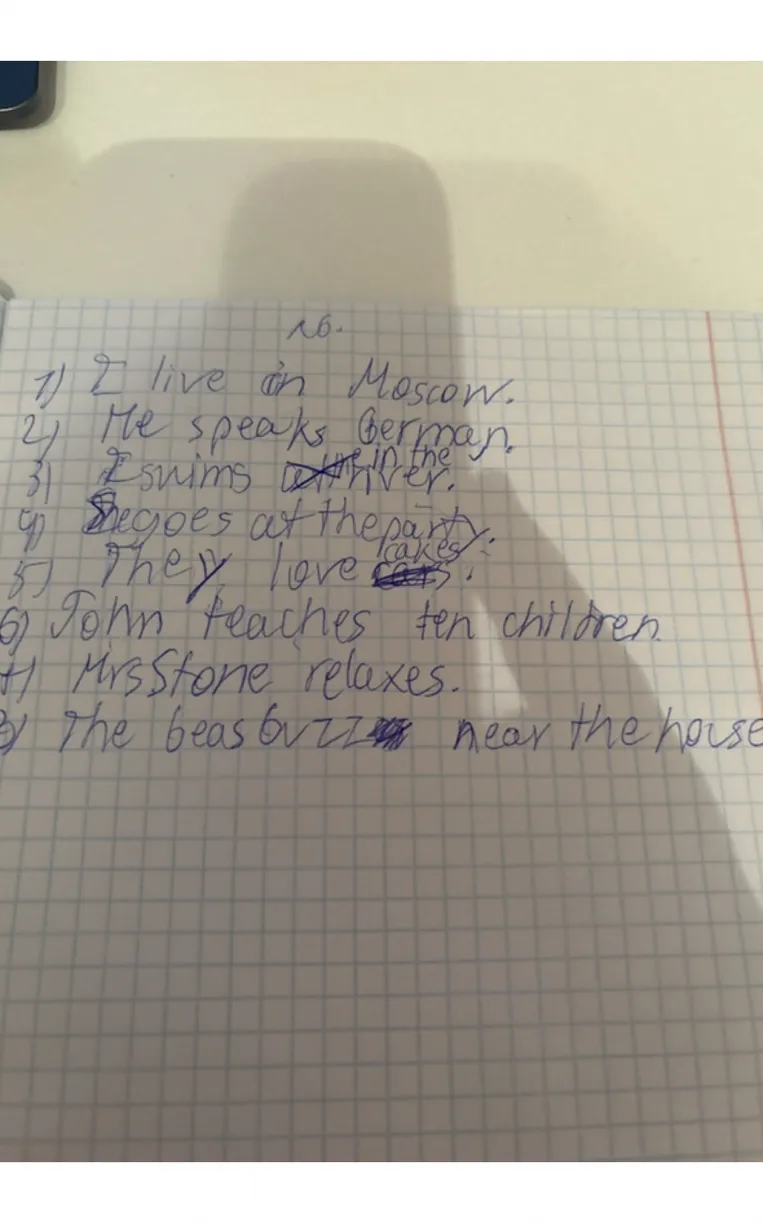 №6.
1) I live in Moscow.
2) He speaks German.
3) I swims in the river.
4) She goes at the party.
5) They love cakes.
6) John teaches ten children.
7) Mrs Stone relaxes.
8) The beas buzz near the house